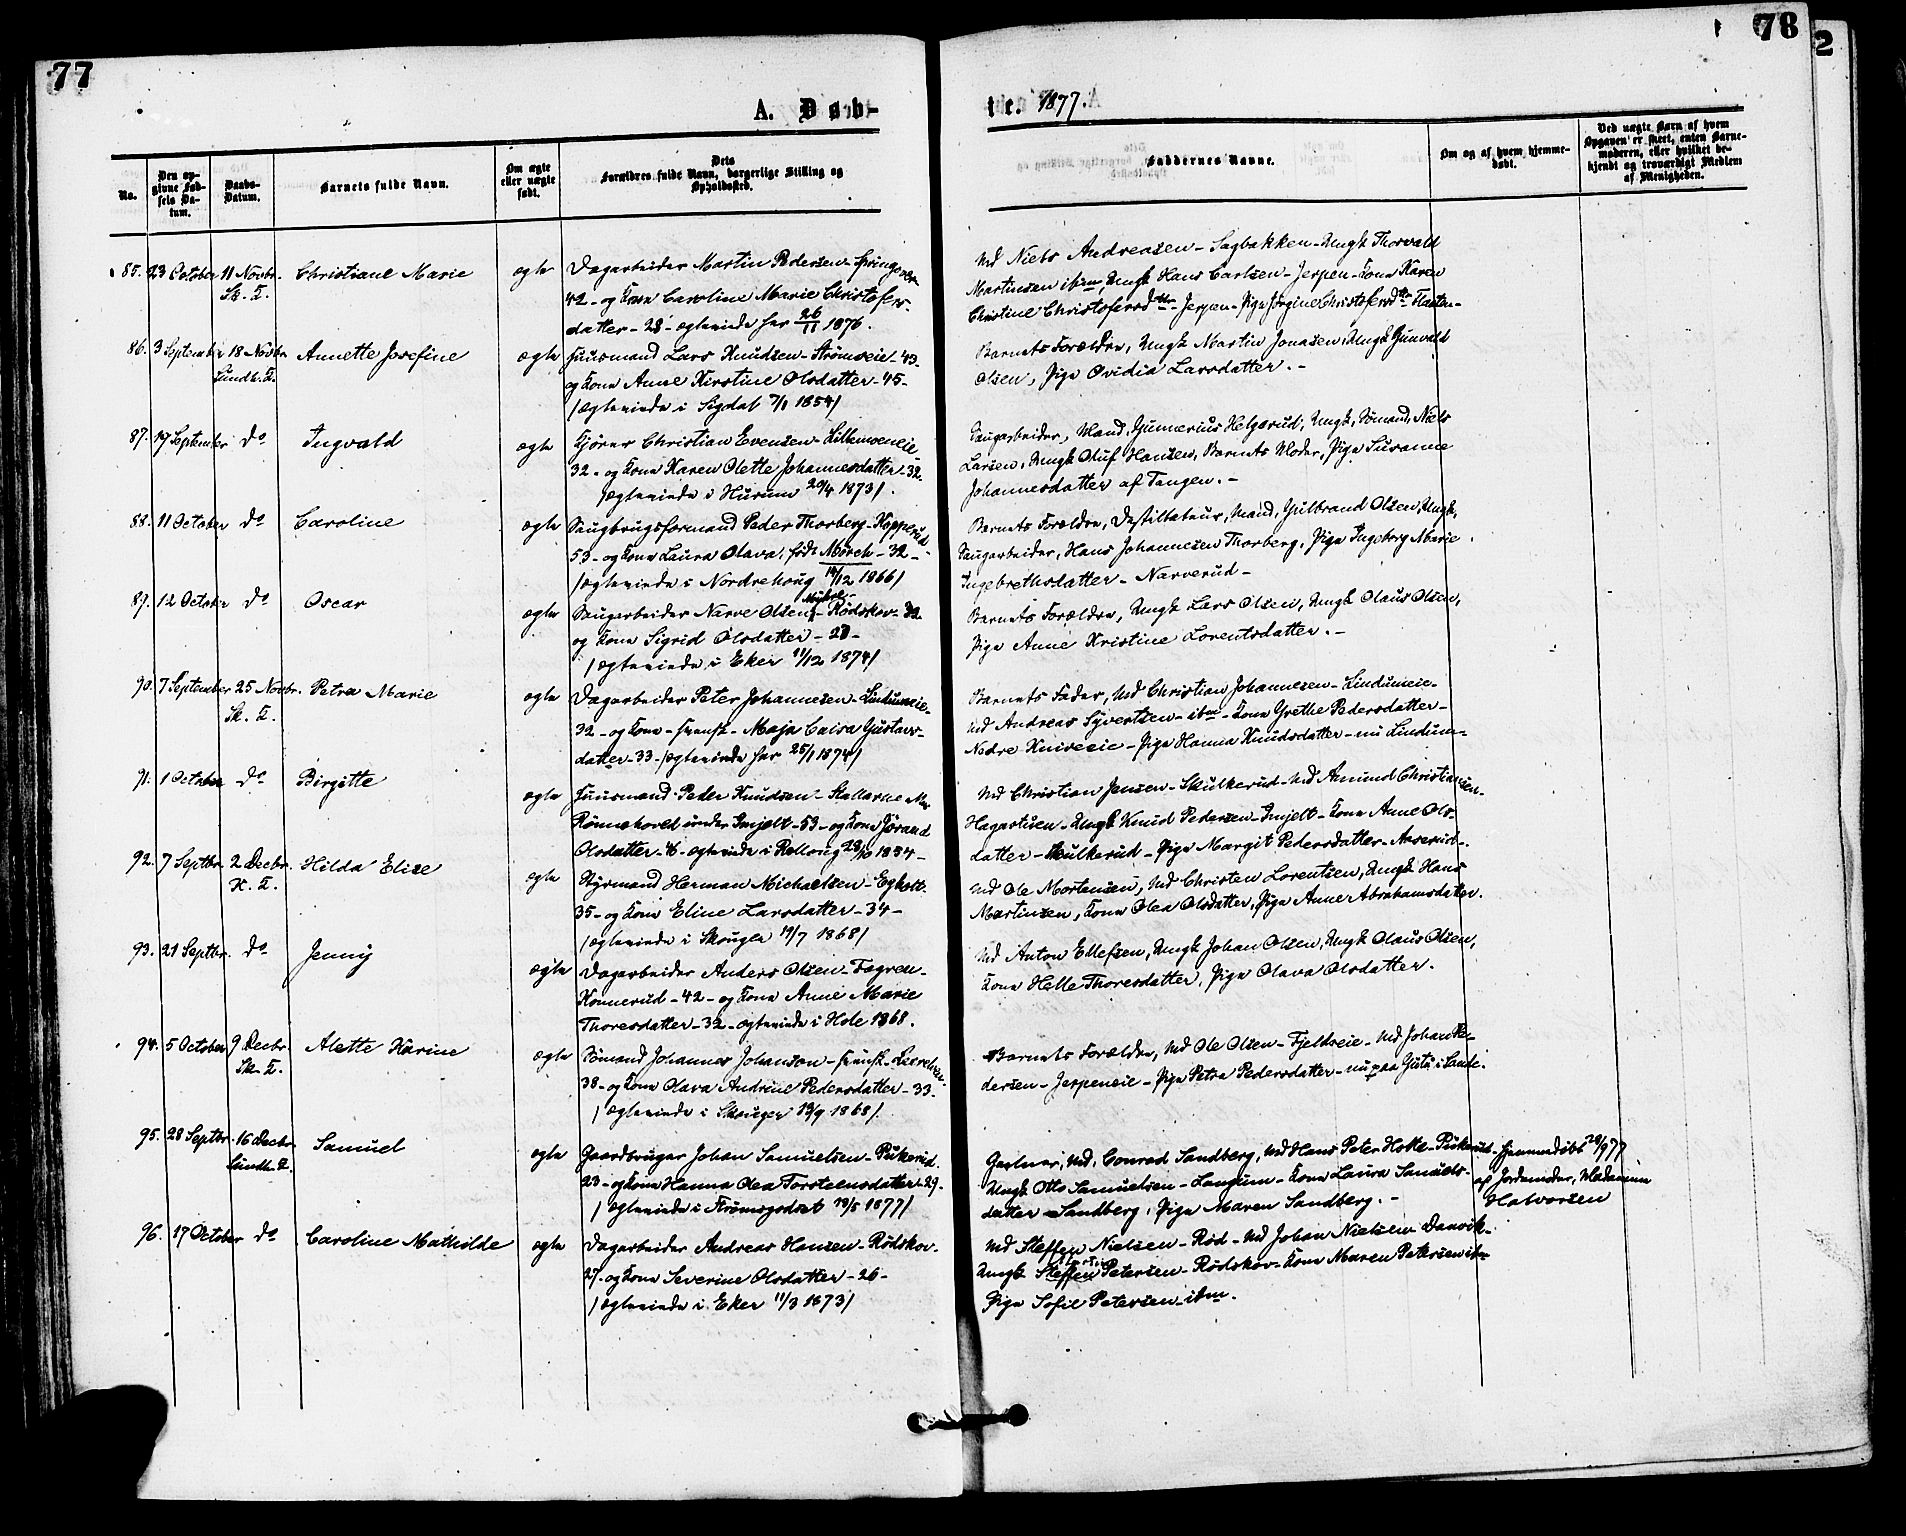 77
78
2
A. Døb-
te. 1877.
No.
Den opgivne Fødsels Datum.
Daabs-Datum.
Barnets fulde Navn.
Om ægte eller uægte født.
Dets Forældres fulde Navn, borgerlige Stilling og Opholdssted.
Faddernes Navne.
Om og af hvem hjemmedøbt.
Ved uægte Børn af hvem Opgaven er skeet, enten Barnemoderen, eller hvilket bekjendt og troværdigt Medlem af Menigheden.
85. 23 October 11 Novbr. Sk. K. Christiane Marie ægte
Dagarbeider Martin Pedersen
42 - og Kone Caroline Marie Christofers-
datter - 28 - ægteviede her 26/11 1876.
Md Niels Andreasen - Sagbakken - Ungk Thorvald
Martinsen ibm, Ungk Hans Carlsen - Jerpen - Kone Karen
Christine Christofersdtr - Jerpen - Pige Jørgine Christofersdtr
86. 3 September 18 Novbr Sundh. K. Annette Josefine ægte
Huusmand Lars Knudsen - Strømseie - 43
og Kone Anne Kirstine Olsdatter - 45 -
/ægteviede i Sigdal 7/1 1854/
Barnets Forældre, Ungk Martin Jonasen, Ungk Gunvald
Olsen, Pige Ovidia Larsdatter. -
87. 19 September do Ingvald ægte
Kjører Christian Evensen - Lillemoeneie
32 - og Kone Karen Olette Johannesdatter - 32.
/ægteviede i Hurum 20/4 1873/.
Saugarbeider, Mand, Gunnerius Helgerud, Ungk, Sømand, Niels
Larsen, Ungk Oluf Hansen, Barnets Moder, Pige Susanne
Johannesdatter af Tangen. -
88. 11 October do Caroline ægte
Saugbrugsformand Peder Thorberg - Kopperud
53 - og Kone Laura Olava, født Mørch - 32 -
/ægteviede i Norderhoug 14/12 1866/
Barnets Forældre, Destillateur, Mand, Gulbrand Olsen, Ungk,
Saugarbeider, Hans Johannesen Thorberg, Pige Ingeborg Marie
Ingebrethsdatter - Narverud -
89. 12 October do Oscar ægte
Saugarbeider Narve Olsen - Rødskov - 32
og Kone Sigrid Olsdatter - 28 -
/ægteviede i Eker 11/12 1874/
Barnets Forældre, Ungk Lars Olsen, Ungk Olaus Olsen,
Pige Anne Kristine Lorentsdatter. -
90. 7 September 25 Novbr. Sk. K. Petra Marie ægte
Dagarbeider Peter Johannesen - Lindumeie -
32 - og Kone - svensk - Maja Caisa Gustavs-
datter - 33 - /ægteviede her 25/1 1874/
Barnets Fader, Md Christian Johannesen - Lindumeie -
Md Andreas Syvertsen - ibm - Kone Grethe Pedersdatter -
Nedre Kniveeie - Pige Hanna Knudsdatter - nu Lindum -
91. 1 October do Birgitte ægte
Huusmand Peder Knudsen
Rønnehoved under Imjelt - 53 - og Kone Jørand
Olsdatter - 46 - ægteviede i Rollaug 28/10 1854 -
Md Christian Jensen - Skulkerud - Md Amund Christiansen -
Hagastuen - Ungk Knud Pedersen - Imjelt - Kone Anne Ols-
datter - Skulkerud - Pige Margit Pedersdatter - Aaserud -
92. 7 Septbr. 2 Decbr. K. K. Hilda Elise ægte
Styrmand Herman Michaelsen - Egholt
35 - og Kone Eline Larsdatter - 34 -
/ægteviede i Skouger 19/7 1868/
Md Ole Mortensen, Md Christen Lorentsen, Ungk Hans
Martinsen, Kone Olea Olsdatter, Pige Anne Abrahamsdatter.
93. 21 Septbr. do Jenny ægte
Dagarbeider Anders Olsen - Fagren -
Konnerud - 42 - og Kone Anne Marie
Thoresdatter - 32 - ægteviede i Hole 1868.
Md Anton Ellefsen, Ungk Johan Olsen, Ungk Olaus Olsen,
Kone Helle Thoresdatter, Pige Olava Olsdatter.
94. 5 October 9 Decbr. Sk. K. Alette Karine ægte
Sømand Johannes Johanson - svensk - Leerelven
38 - og Kone Olava Andrine Pedersdatter - 33 -
/ægteviede i Skouger 13/9 1868/.
Barnets Forældre, Md Ole Olsen - Fjeldreie - Md Johan Pe-
dersen - Jerpeneie - Pige Petra Pedersdatter - nu paa i Sande.
95. 28 Septbr. 16 Decbr. Sundh. K. Samuel ægte
Gaardbruger Johan Samuelsen - Pukerud.
23 - og Kone Hanna Olea Torsteensdatter - 29 -
/ægteviede i Strømsgodset 13/5 1877/
Gartner, Md, Conrad Sandberg, Md Hans Peter Holte - Pukerud -
Ungk Otto Samuelsen - Langum - Kone Laura Samuels-
datter Sandberg, Pige Maren Sandberg. -
hjemmedøbt 28/9 77
af Jordemoder, Madamm
Halvorsen
96. 17 October do Caroline Mathilde ægte
Dagarbeider Andreas Hansen - Rødskov.
27 - og Kone Severine Olsdatter - 26 -
/ægteviede i Eker 11/3 1873/
Md Steffen Nielsen - Rød - Md Johan Nielsen Danvik -
Ungk Steffen Petersen - Rødskov - Kone Maren Petersen ibm
Pige Sofie Petersen - ibm.